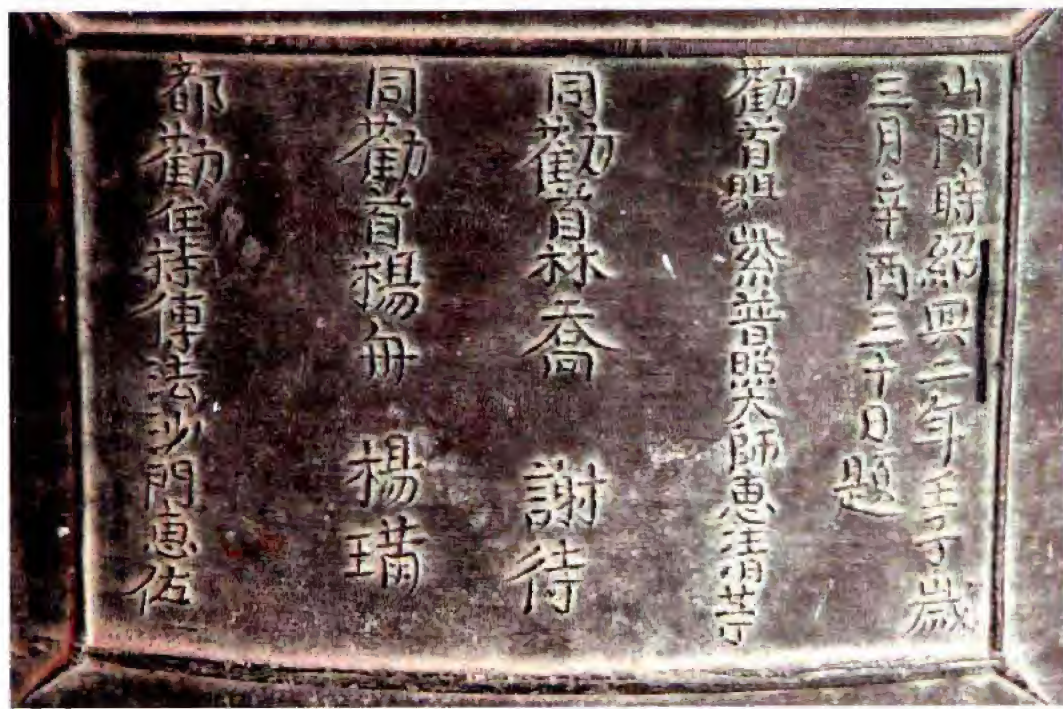 山門時紹興二年壬子歲
三月辛酉三十日題
勸首賜紫普照大師惠
同勸首林喬 謝待
同勸首楊舟 楊璊
都勸住持傳法沙門惠佐